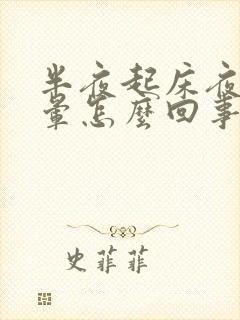 半夜起床夜
晕怎麼回事
史菲菲